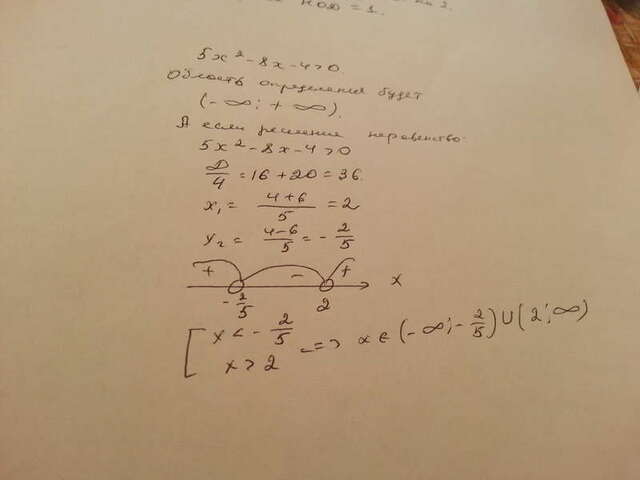 НОД = 1.
5x² - 8x - 4 > 0.
Область определения будет
(-∞; +∞).
А если решение неравенство.
5x² - 8x - 4 > 0
D/4 = 16 + 20 = 36.
x₁ = (4+6)/5 = 2
x₂ = (4-6)/5 = -2/5
+ - + x
-2/5 2
[ x < -2/5
x > 2 => x ∈ (-∞; -2/5) ∪ (2; ∞)